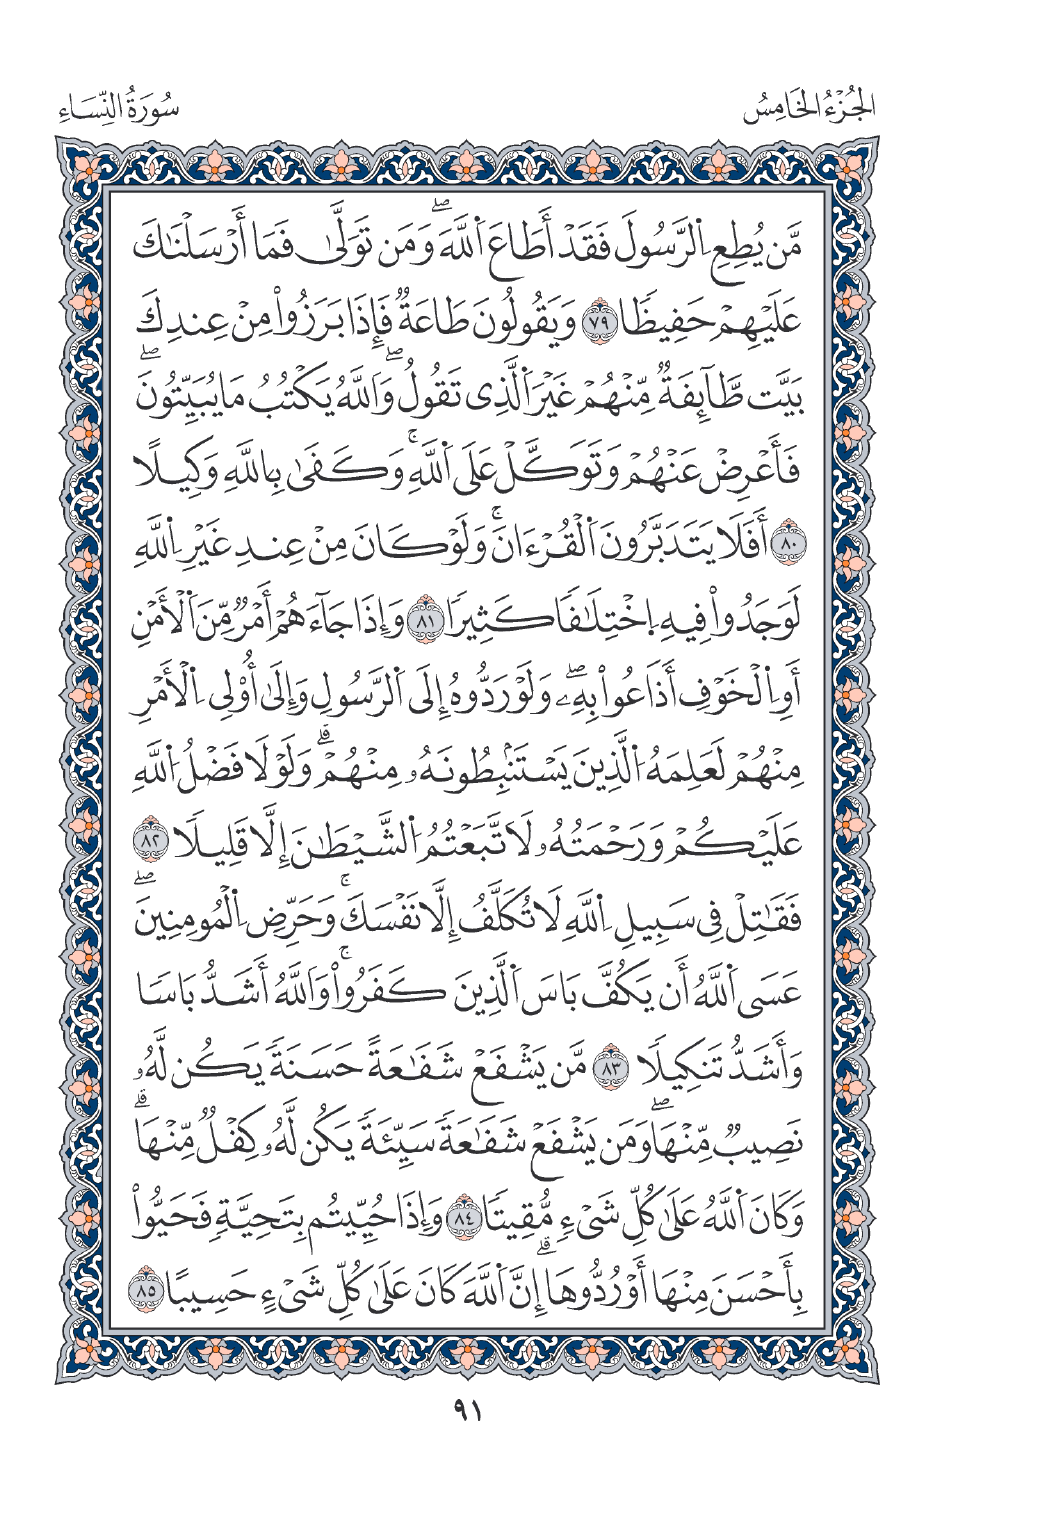 الجُزْءُ الخَامِسُ
سُورَةُ النِّسَاءِ
مَّن يُطِعِ اِ۬لرَّسُولَ فَقَدْ أَطَاعَ اَ۬للَّهَۖ وَمَن تَوَلَّىٰ فَمَا أَرْسَلْنَٰكَ
عَلَيْهِمْ حَفِيظٗا ٧٩ وَيَقُولُونَ طَاعَةٞ فَإِذَا بَرَزُواْ مِنْ عِندِكَ
بَيَّت طَّآئِفَةٞ مِّنْهُمْ غَيْرَ اَ۬لَّذِى تَقُولُۖ وَاللَّهُ يَكْتُبُ مَا يُبَيِّتُونَۖ
فَأَعْرِضْ عَنْهُمْ وَتَوَكَّلْ عَلَى اَ۬للَّهِۚ وَكَفَىٰ بِاللَّهِ وَكِيلًا
٨٠ أَفَلَا يَتَدَبَّرُونَ اَ۬لْقُرْءَانَۚ وَلَوْ كَانَ مِنْ عِندِ غَيْرِ اِ۬للَّهِ
لَوَجَدُواْ فِيهِ اِ۪خْتِلَٰفٗا كَثِيرٗا ٨١ وَإِذَا جَآءَهُمْ أَمْرٞ مِّنَ اَ۬لْأَمْنِ
أَوِ اِ۬لْخَوْفِ أَذَاعُواْ بِهِۦۖ وَلَوْ رَدُّوهُ إِلَى اَ۬لرَّسُولِ وَإِلَىٰ أُوْلِى اِ۬لْأَمْرِ
مِنْهُمْ لَعَلِمَهُ اُ۬لَّذِينَ يَسْتَنۢبِطُونَهُۥ مِنْهُمْۗ وَلَوْلَا فَضْلُ اُ۬للَّهِ
عَلَيْكُمْ وَرَحْمَتُهُۥ لَاتَّبَعْتُمُ اُ۬لشَّيْطَٰنَ إِلَّا قَلِيلٗا ٨٢
فَقَٰتِلْ فِى سَبِيلِ اِ۬للَّهِ لَا تُكَلَّفُ إِلَّا نَفْسَكَۚ وَحَرِّضِ اِ۬لْمُومِنِينَۖ
عَسَى اَ۬للَّهُ أَن يَكُفَّ بَاسَ اَ۬لَّذِينَ كَفَرُواْۚ وَاللَّهُ أَشَدُّ بَاسٗا
وَأَشَدُّ تَنكِيلٗا ٨٣ مَّن يَشْفَعْ شَفَٰعَةً حَسَنَةٗ يَكُن لَّهُۥ
نَصِيبٞ مِّنْهَاۖ وَمَن يَشْفَعْ شَفَٰعَةٗ سَيِّئَةٗ يَكُن لَّهُۥ كِفْلٞ مِّنْهَاۗ
وَكَانَ اَ۬للَّهُ عَلَىٰ كُلِّ شَىْءٖ مُّقِيتٗا ٨٤ وَإِذَا حُيِّيتُم بِتَحِيَّةٖ فَحَيُّواْ
بِأَحْسَنَ مِنْهَا أَوْ رُدُّوهَاۗ إِنَّ اَ۬للَّهَ كَانَ عَلَىٰ كُلِّ شَىْءٍ حَسِيبًا ٨٥
٩١